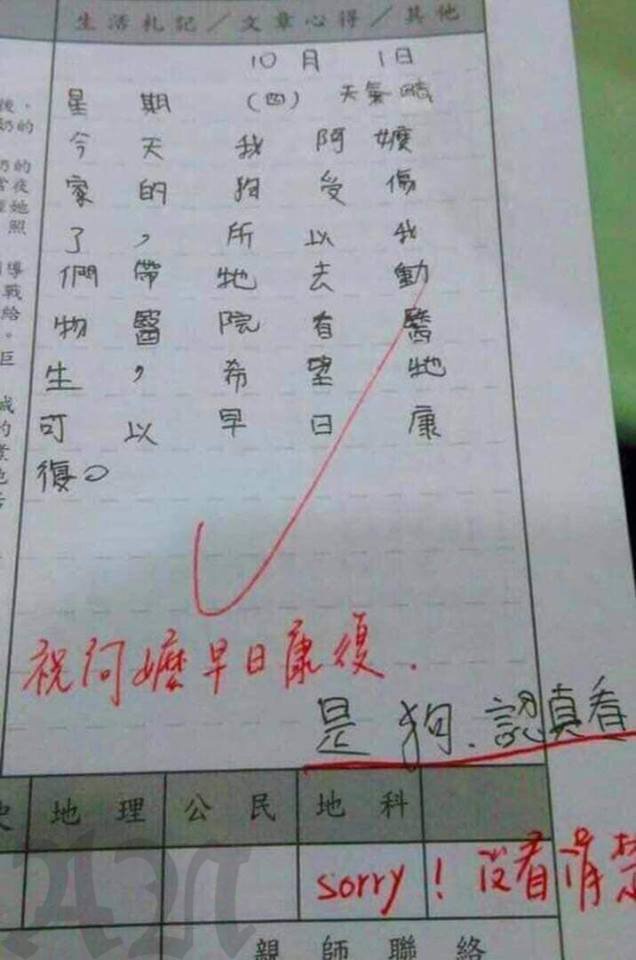 生活札記／文章心得／其他
10月 1日
星期(四) 天氣
今天我阿嬤
家的狗受傷
了，所以我
們帶牠去動
物醫院看醫
生，希望牠
可以早日康
復。
祝阿嬤早日康復.
是狗.認真看
地理 公民 地科
sorry! 沒看清楚
親師聯絡